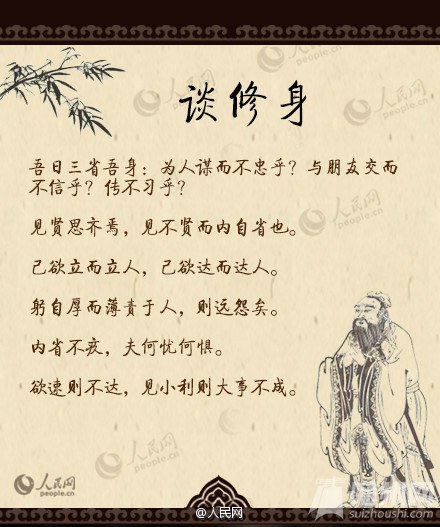 谈修身
吾日三省吾身：为人谋而不忠乎？与朋友交而
不信乎？传不习乎？
见贤思齐焉，见不贤而内自省也。
己欲立而立人，己欲达而达人。
躬自厚而薄责于人，则远怨矣。
内省不疚，夫何忧何惧。
欲速则不达，见小利则大事不成。
人民网
people.cn
@人民网
suizhoushi.com